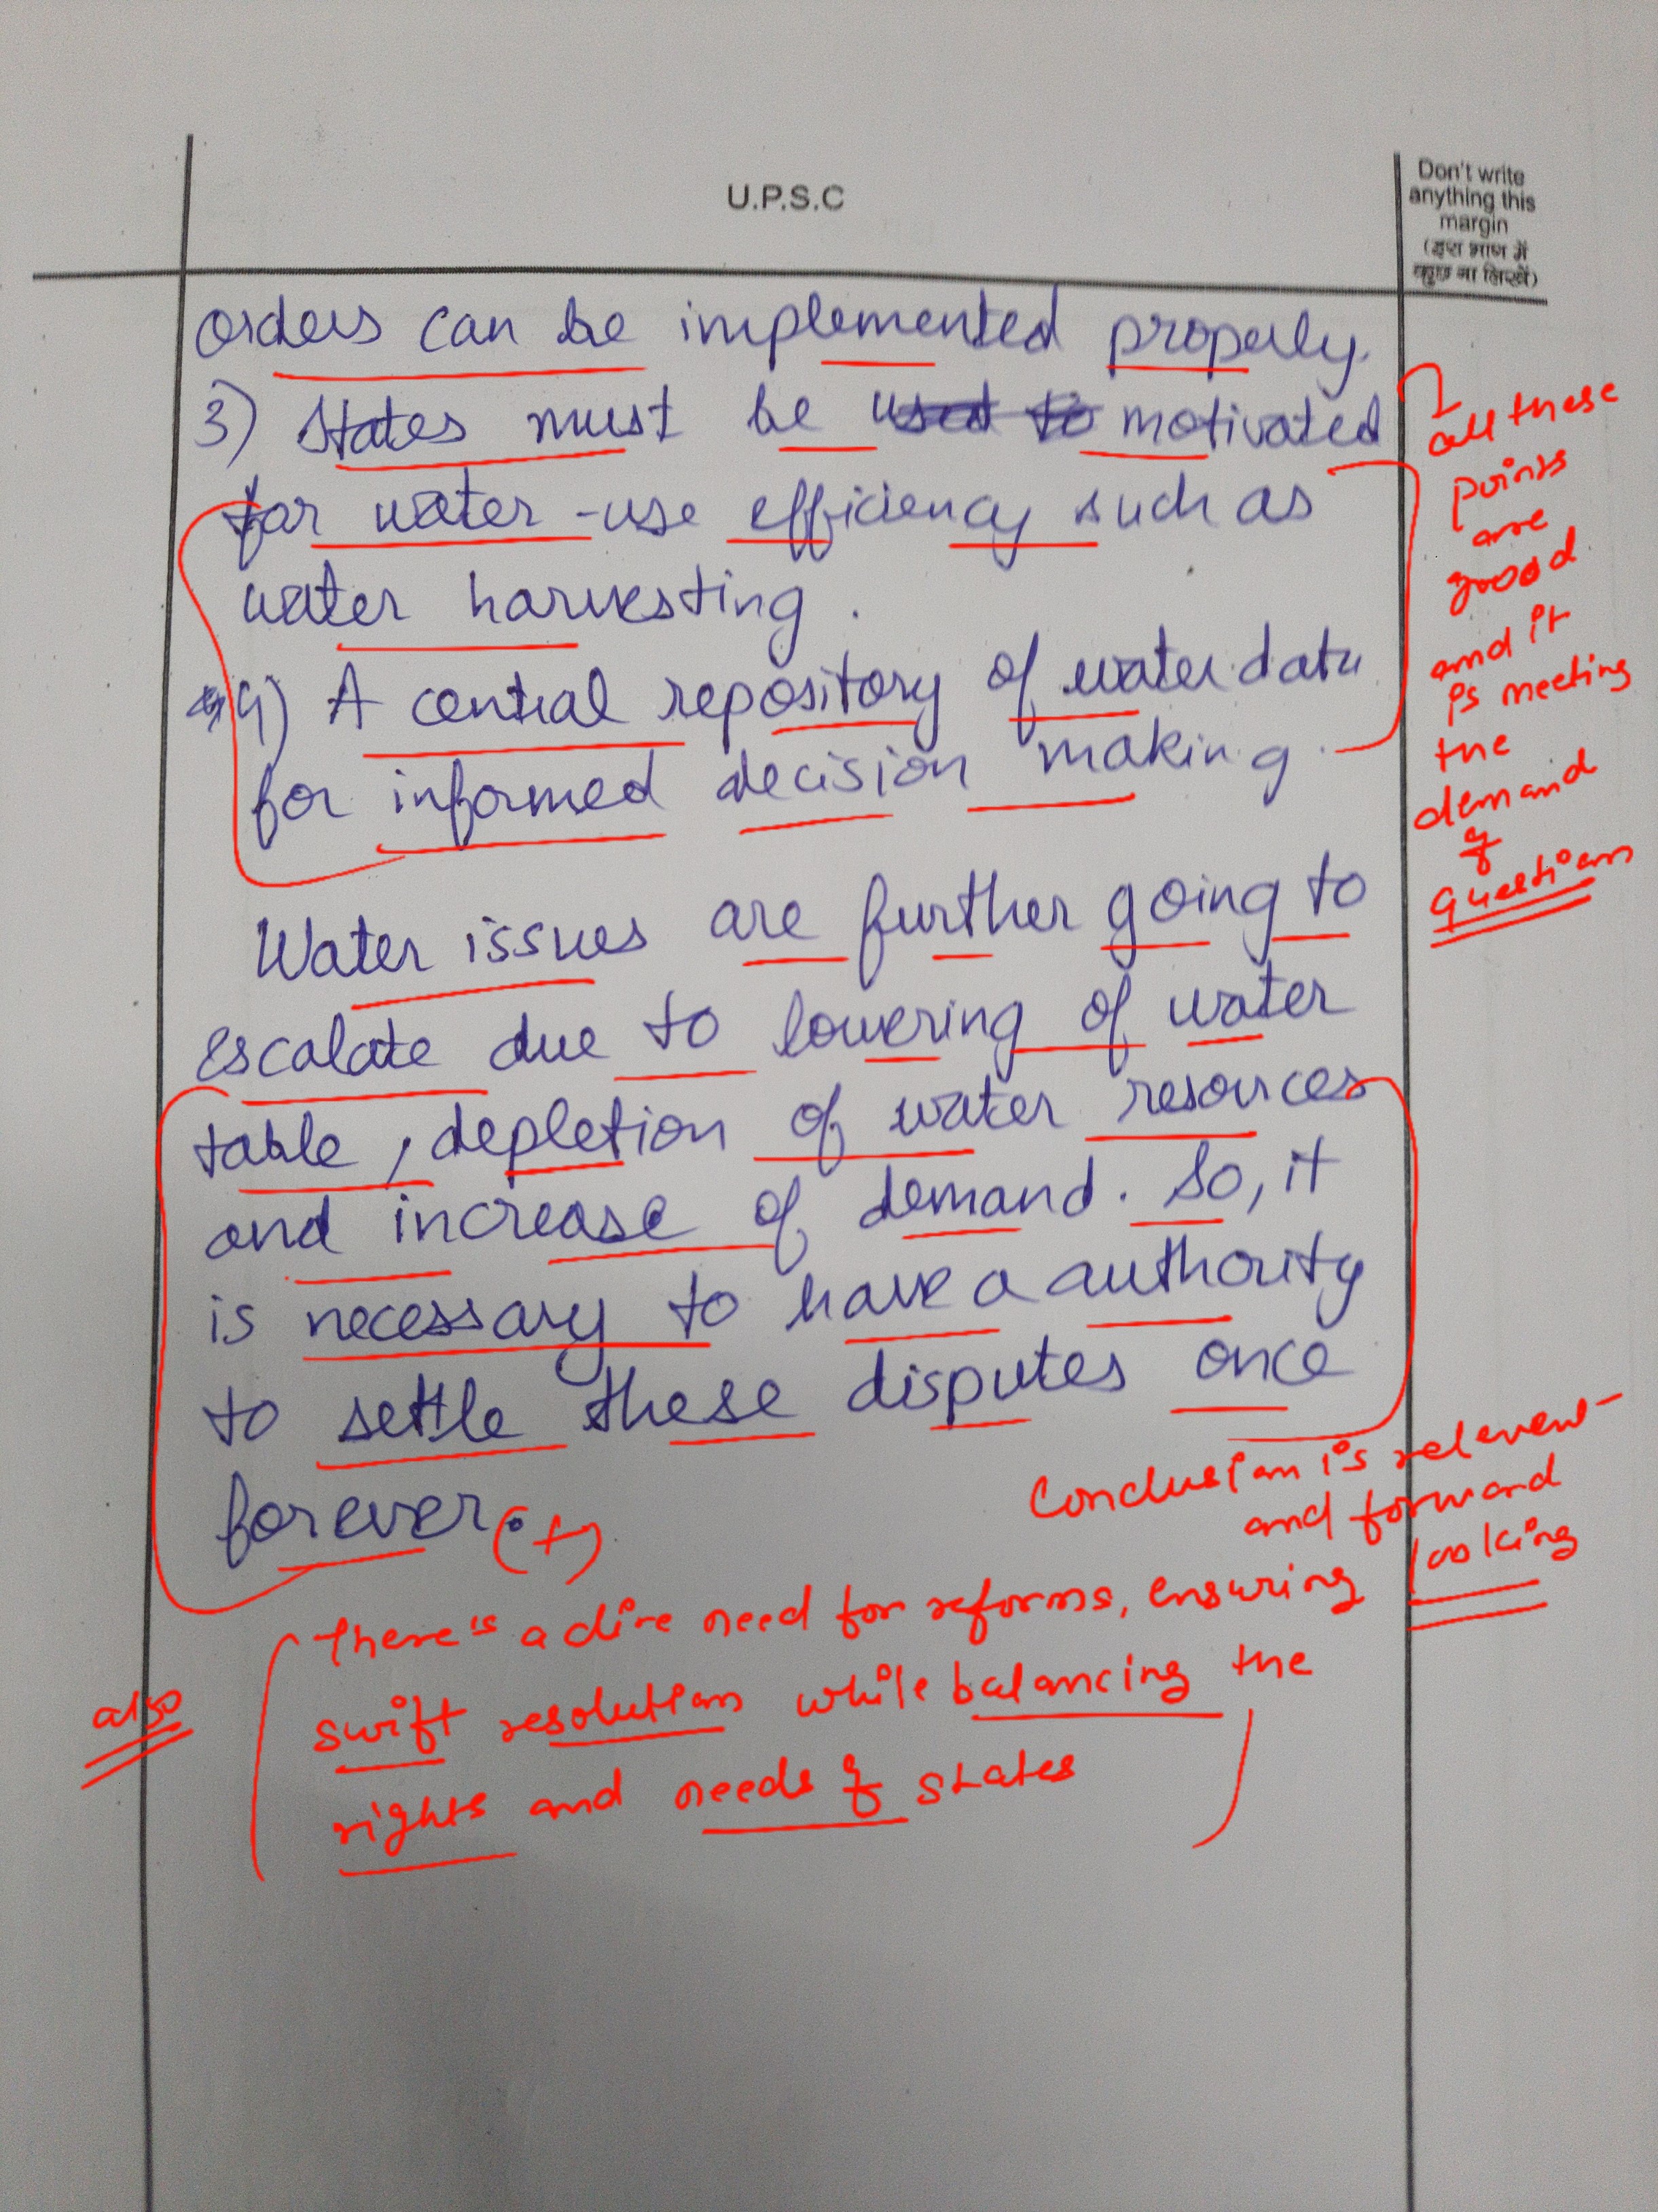 U.P.S.C
Don't write
anything this
margin
(इस भाग में
कुछ ना लिखें)
orders can be implemented properly.
3) States must be used to motivated
for water-use efficiency such as
water harvesting.
4) A central repository of water data
for informed decision making.
all these
points
are
good
and it
is meeting
the
demand
of
question
Water issues are further going to
escalate due to lowering of water
table, depletion of water resources
and increase of demand. So, it
is necessary to have a authority
to settle these disputes once
forever. (+)
Conclusion is relevent
and forward
looking
also
there's a dire need for reforms, ensuring
swift resolution while balancing the
rights and needs of states